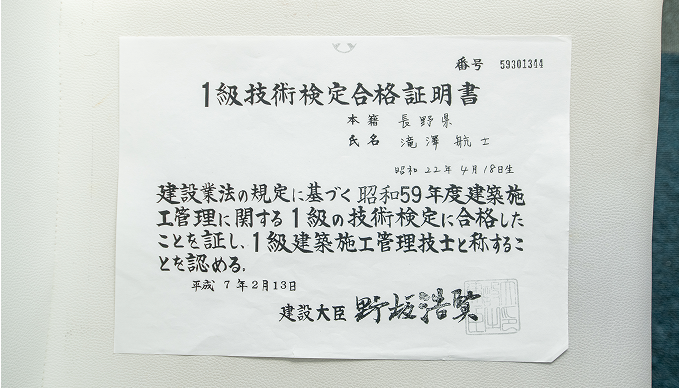 番号 59301344
1級技術検定合格証明書
本籍 長野県
氏名 滝澤航士
昭和22年4月18日生
建設業法の規定に基づく昭和59年度建築施
工管理に関する1級の技術検定に合格した
ことを証し、1級建築施工管理技士と称するこ
とを認める。
平成7年2月13日
建設大臣 野坂浩賢